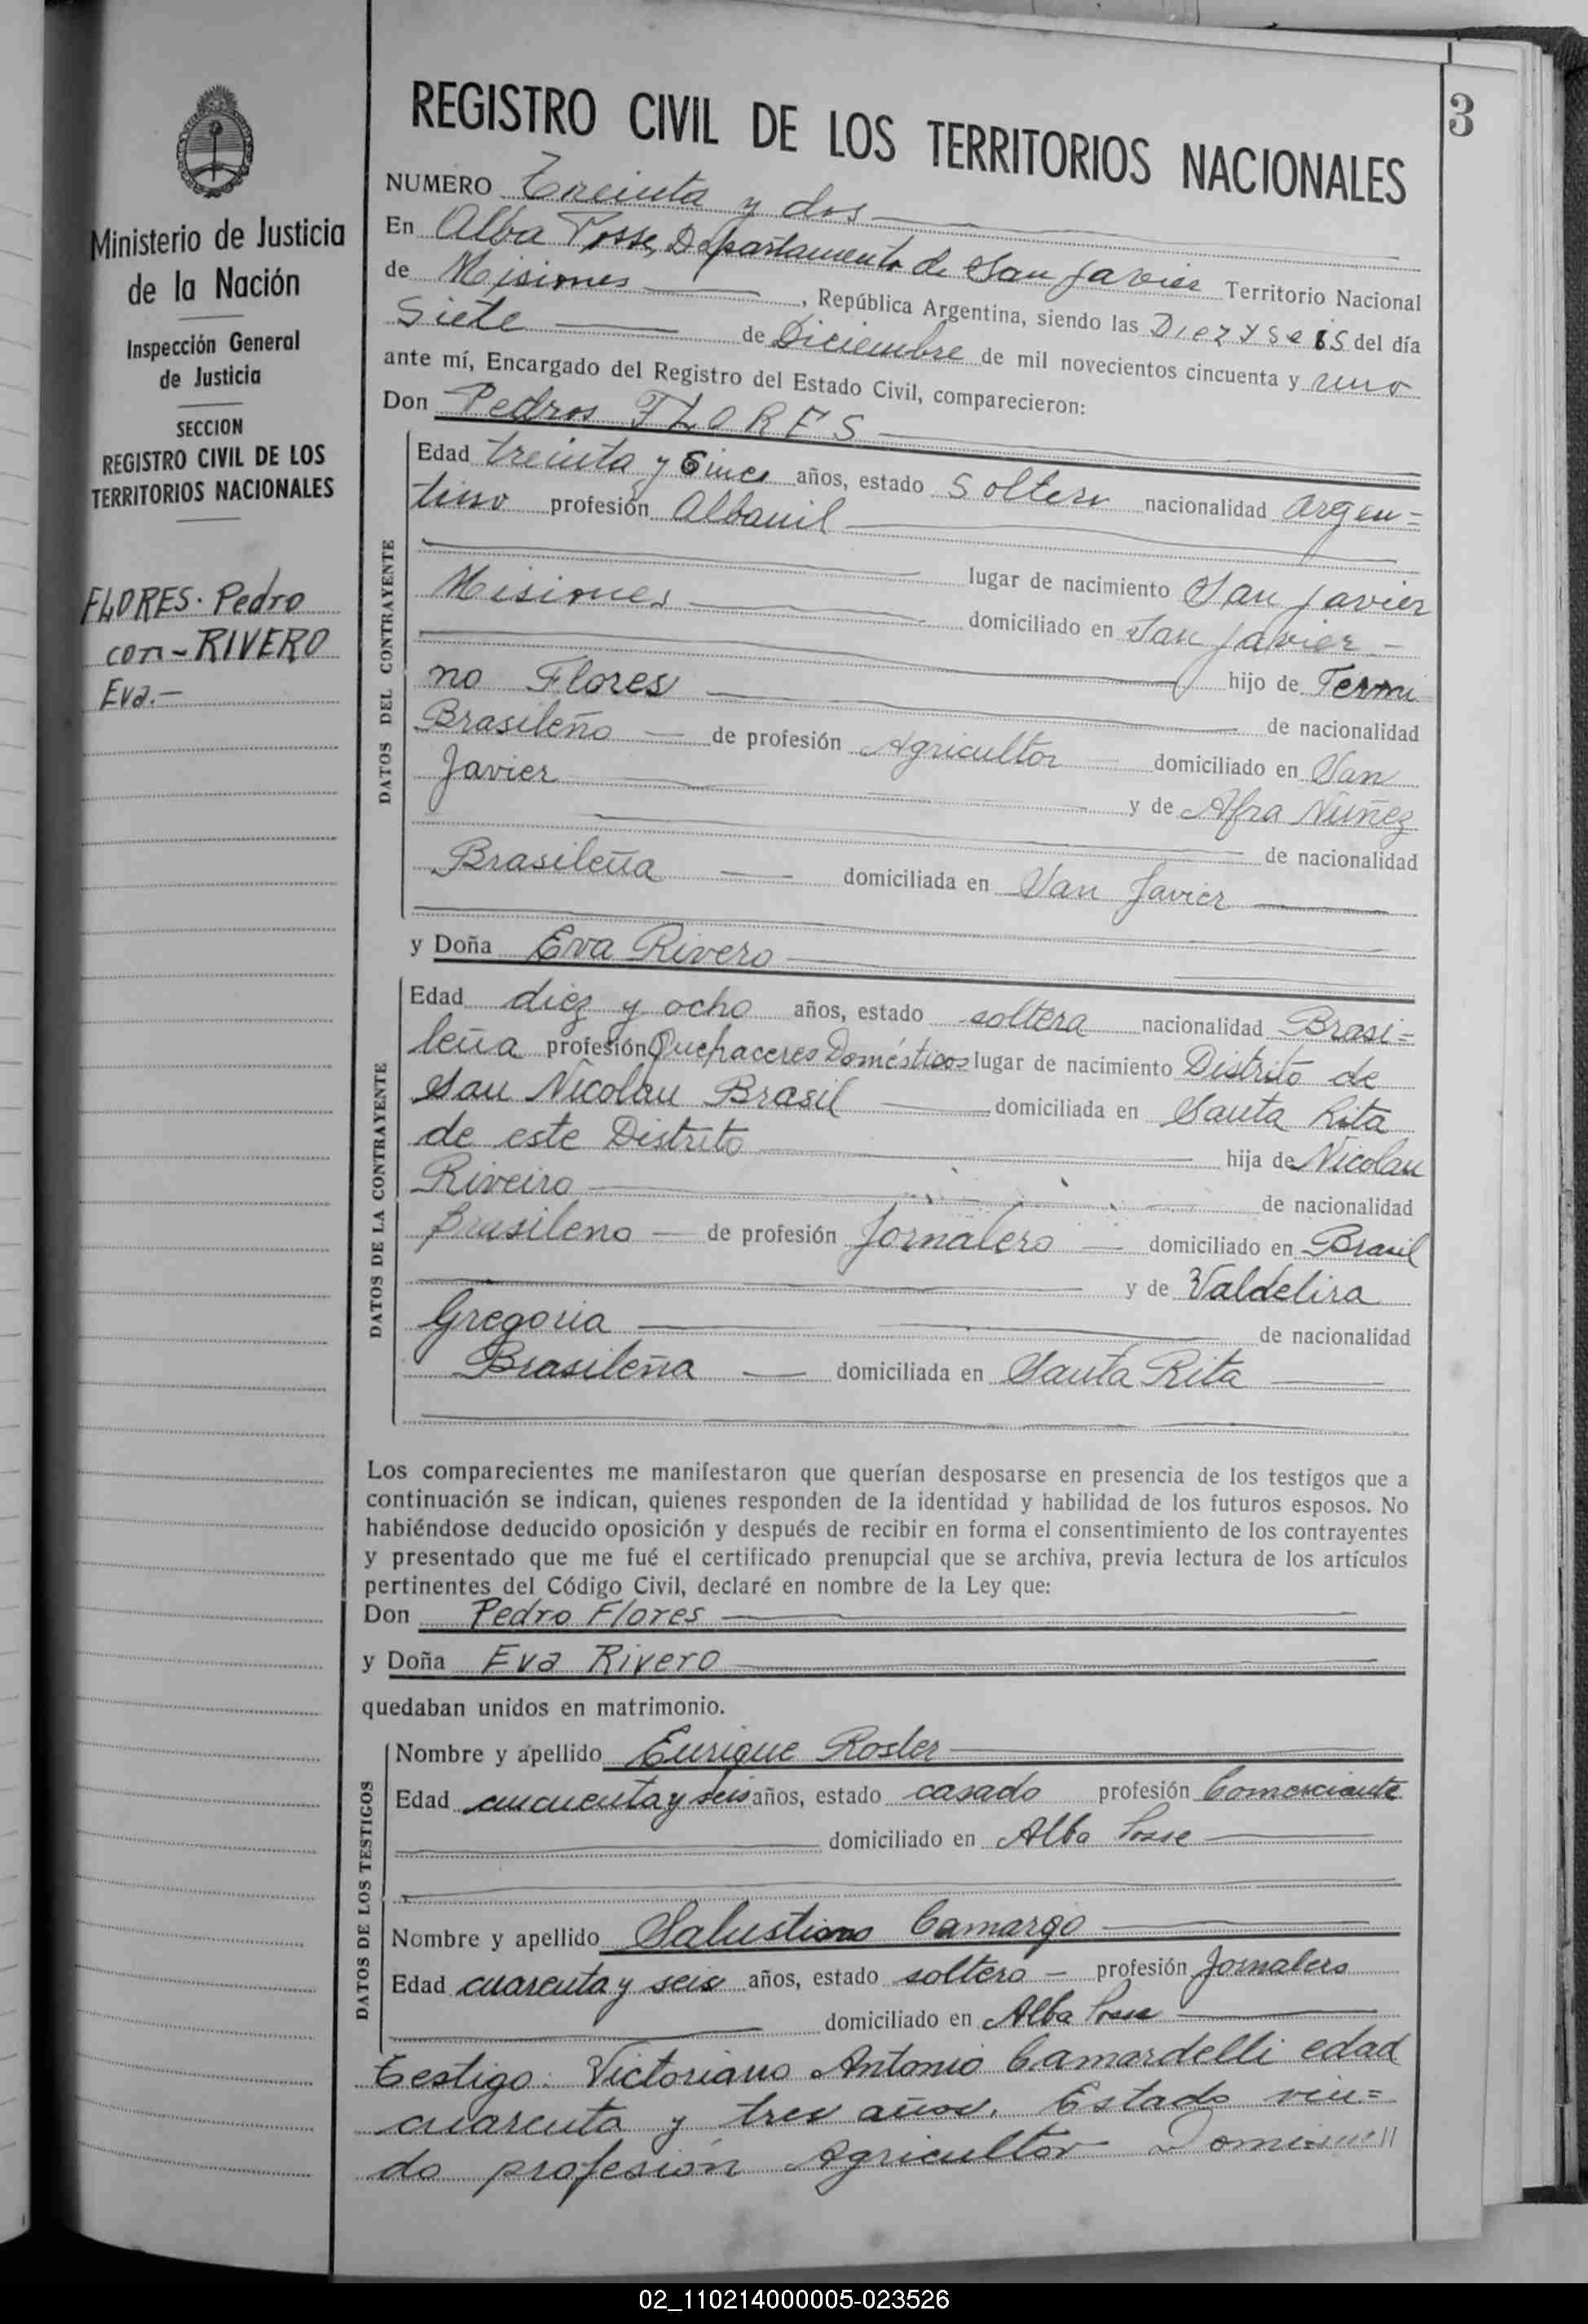 Ministerio de Justicia
de la Nación
Inspección General
de Justicia
SECCION
REGISTRO CIVIL DE LOS
TERRITORIOS NACIONALES
FLORES. Pedro
con-RIVERO
Eva.-
3
REGISTRO CIVIL DE LOS TERRITORIOS NACIONALES
NUMERO Treinta y dos
En Alba Posse, Departamento de San Javier Territorio Nacional
de Misiones, República Argentina, siendo las Diez y seis del día
Siete de Diciembre de mil novecientos cincuenta y uno
ante mí, Encargado del Registro del Estado Civil, comparecieron:
Don Pedros FLORES
DATOS DEL CONTRAYENTE
Edad treinta y Cinco años, estado Soltero nacionalidad argen=
tino profesión Albanil
lugar de nacimiento San Javier
Misiones domiciliado en San Javier.-
hijo de Fermi
no Flores de nacionalidad
Brasileño de profesión Agricultor domiciliado en San
Javier y de Afra Núñez
de nacionalidad
Brasileña domiciliada en San Javier
y Doña Eva Rivero
DATOS DE LA CONTRAYENTE
Edad diez y ocho años, estado soltera nacionalidad Brasi=
leña profesión Quehaceres Domésticos lugar de nacimiento Distrito de
San Nicolau Brasil domiciliada en Santa Rita
de este Distrito hija de Nicolau
Riveiro de nacionalidad
Brasileno de profesión Jornalero domiciliado en Brasil
y de Valdelira
Gregoria de nacionalidad
Brasileña domiciliada en Santa Rita
Los comparecientes me manifestaron que querían desposarse en presencia de los testigos que a
continuación se indican, quienes responden de la identidad y habilidad de los futuros esposos. No
habiéndose deducido oposición y después de recibir en forma el consentimiento de los contrayentes
y presentado que me fué el certificado prenupcial que se archiva, previa lectura de los artículos
pertinentes del Código Civil, declaré en nombre de la Ley que:
Don Pedro Flores
y Doña Eva Rivero
quedaban unidos en matrimonio.
DATOS DE LOS TESTIGOS
Nombre y apellido Enrique Rosler
Edad cincuenta y seis años, estado casado profesión Comerciante
domiciliado en Alba Posse
Nombre y apellido Salustiano Camargo
Edad cuarenta y seis años, estado soltero - profesión Jornalero
domiciliado en Alba Posse
Testigo: Victoriano Antonio Camardelli edad
cuarenta y tres años. Estado viu=
do profesión Agricultor
02_110214000005-023526